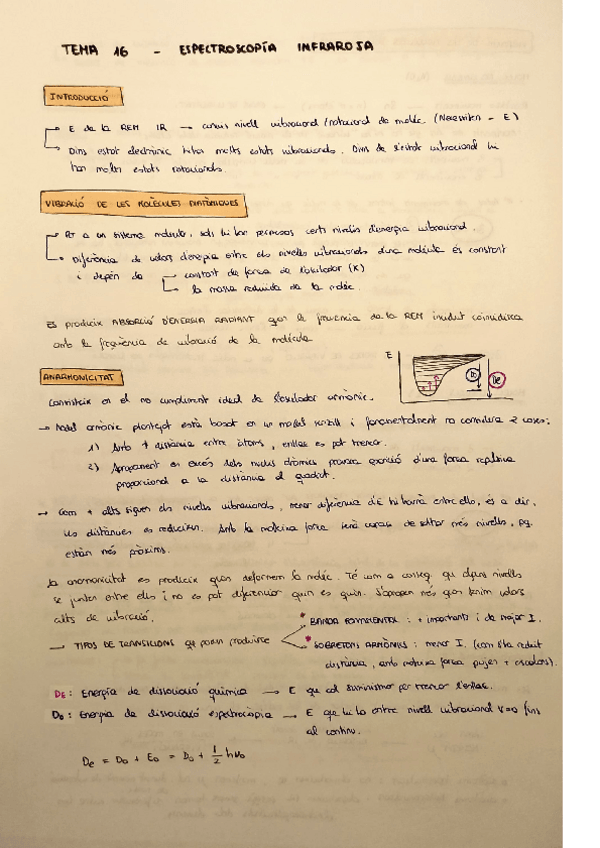 TEMA 16 - ESPECTROSCOPÍA INFRAROJA
INTRODUCCIÓ
E de la REM IR → canvis nivell vibracional / rotacional de molèc. (Necessiten - E)
Dins estat electrònic hi ha molts estats vibracionals. Dins de l'estat vibracional hi
han molts estats rotacionals.
VIBRACIÓ DE LES MOLÈCULES DIATÒMIQUES
a un sistema molecular, sols hi ha permesos certs nivells d'energia vibracional.
Diferència de valors d'energia entre els nivells vibracionals d'una molècula és constant
i depén de constant de força de l'oscilador (K)
la massa reduida de la molèc.
Es produix ABSORCIÓ D'ENERGIA RADIANT quan la freqüència de la REM incident coincidisca
amb la freqüència de vibració de la molècula
E
D0
De
ANARMONICITAT
Consisteix en el no compliment ideal de l'oscilador armònic.
→ Model armònic plantejat està basat en un model senzill i fonamentalment no considera 2 coses:
1) Amb + distància entre àtoms, enllaç es pot trencar.
2) Apropament en excés dels nuclis atòmics provoca aparició d'una força repulsiva
proporcional a la distància al quadrat.
→ Com + alts siguen els nivells vibracionals, menor diferència d'E hi haurà entre ells, és a dir,
les distàncies es reduixen. Amb la mateixa força serà capaç de saltar més nivells, pq
estàn més pròxims.
La anarmonicitat es produix quan deformem la molèc. Té com a conseq. que alguns nivells
se junten entre ells i no es pot diferenciar quin es quin. S'apropen més quan tenim valors
alts de vibració.
→ TIPOS DE TRANSICIONS que poden produirse
* BANDA FONAMENTAL : + importants i de major I.
* SOBRETONS ARMÒNICS : menor I. (com s'ha reduit
distància, amb mateixa força pujes + escalons).
DE : Energía de dissociació química → E que cal suministrar per trencar l'enllaç.
D0 : Energía de dissociació espectroscòpica → E que hi ha entre nivell vibracional v=0 fins
al continu.
De = D0 + E0 = D0 + 1/2 hν0